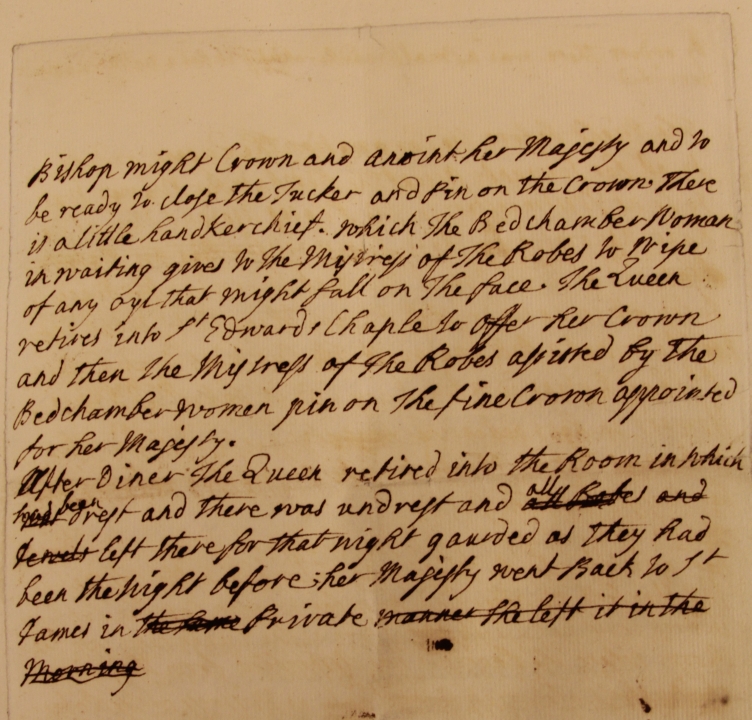 Bishop might Crown and anoint her Majesty and to
be ready to close the Tucker and Pin on the Crown. There
is a little handkerchief. which The Bedchamber Woman
in waiting gives to the Mistress of The Robes to wipe
of any oyl that might fall on The face. The Queen
retires into St Edwards Chaple to offer her Crown
and then the Mistress of The Robes assisted by the
Bedchamber women pin on The fine Crown appointed
for her Majesty.
After Diner The Queen retired into the Room in which
had been drest and there was undrest and all and
Jewels left there for that night gaurded as they had
been the Night before; her Majesty went Back to St
James in the same Private manner She left it in the
Morning